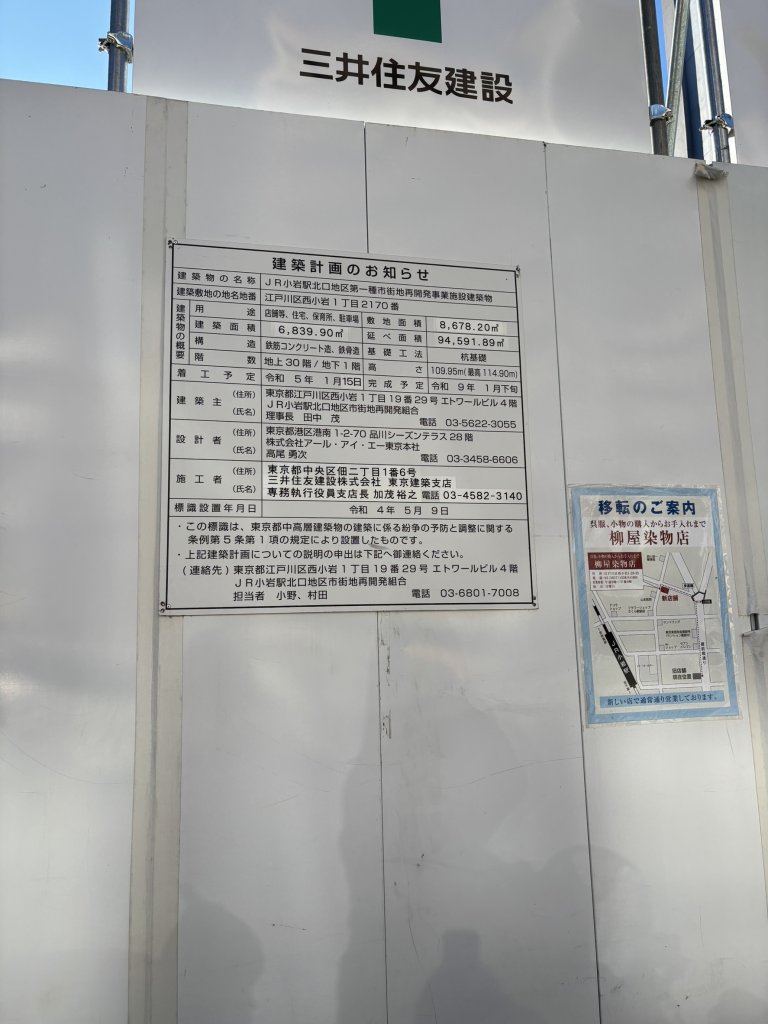 三井住友建設
建築計画のお知らせ
建築物の名称 JR小岩駅北口地区第一種市街地再開発事業施設建築物
建築敷地の地名地番 江戸川区西小岩1丁目2170番
建築物の概要
用途 店舗等、住宅、保育所、駐車場 敷地面積 8,678.20㎡
建築面積 6,839.90㎡ 延べ面積 94,591.89㎡
構造 鉄筋コンクリート造、鉄骨造 基礎工法 杭基礎
階数 地上30階/地下1階 高さ 109.95m(最高114.90m)
着工予定 令和 5年 1月15日 完成予定 令和 9年 1月下旬
建築主 (住所) 東京都江戸川区西小岩1丁目19番29号 エトワールビル4階
(氏名) JR小岩駅北口地区市街地再開発組合
理事長 田中 茂 電話 03-5622-3055
設計者 (住所) 東京都港区港南1-2-70 品川シーズンテラス28階
(氏名) 株式会社アール・アイ・エー東京本社
高尾 勇次 電話 03-3458-6606
施工者 (住所) 東京都中央区佃二丁目1番6号
(氏名) 三井住友建設株式会社 東京建築支店
専務執行役員支店長 加茂裕之 電話 03-4582-3140
標識設置年月日 令和 4年 5月 9日
・この標識は、東京都中高層建築物の建築に係る紛争の予防と調整に関する
条例第5条第1項の規定により設置したものです。
・上記建築計画についての説明の申出は下記へ御連絡ください。
(連絡先) 東京都江戸川区西小岩1丁目19番29号 エトワールビル4階
JR小岩駅北口地区市街地再開発組合
担当者 小野、村田 電話 03-6801-7008
移転のご案内
呉服、小物の購入からお手入れまで
柳屋染物店
柳屋染物店
新店舗
旧店舗
現在位置
新しい店で通常通り営業しております。